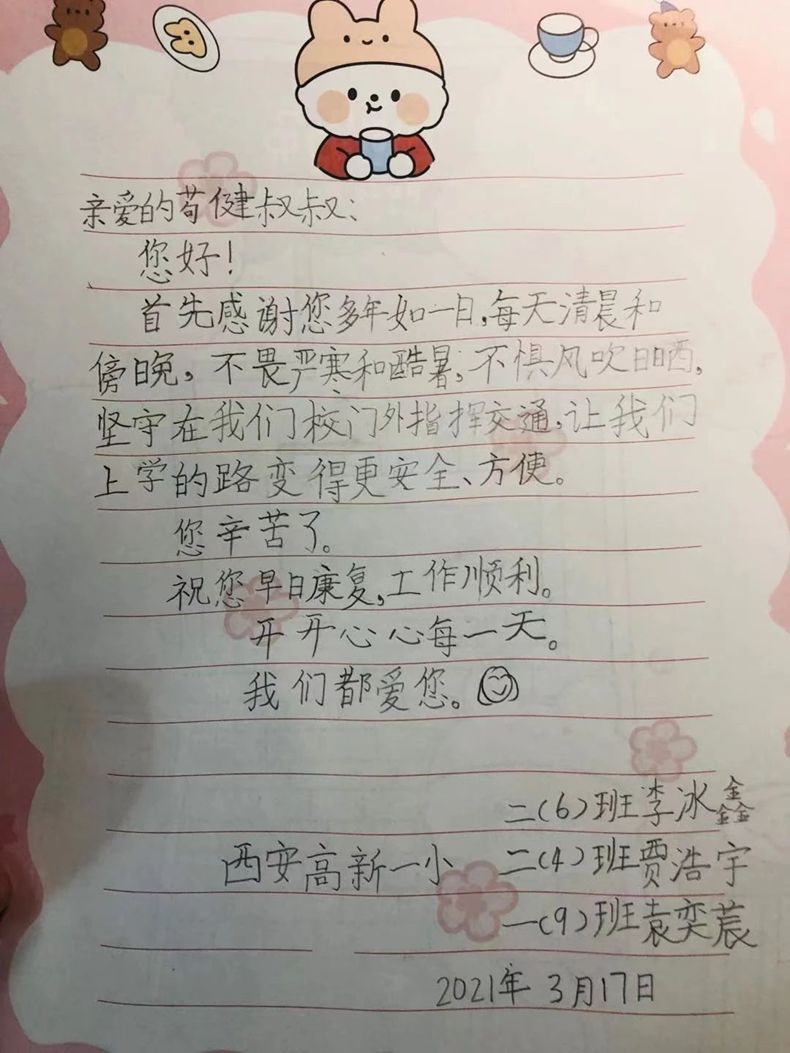 亲爱的苟健叔叔:
您好!
首先感谢您多年如一日,每天清晨和
傍晚,不畏严寒和酷暑,不惧风吹日晒,
坚守在我们校门外指挥交通,让我们
上学的路变得更安全、方便。
您辛苦了。
祝您早日康复,工作顺利。
开开心心每一天。
我们都爱您。
二(6)班李冰鑫
西安高新一小 二(4)班贾浩宇
一(9)班袁奕莀
2021年3月17日